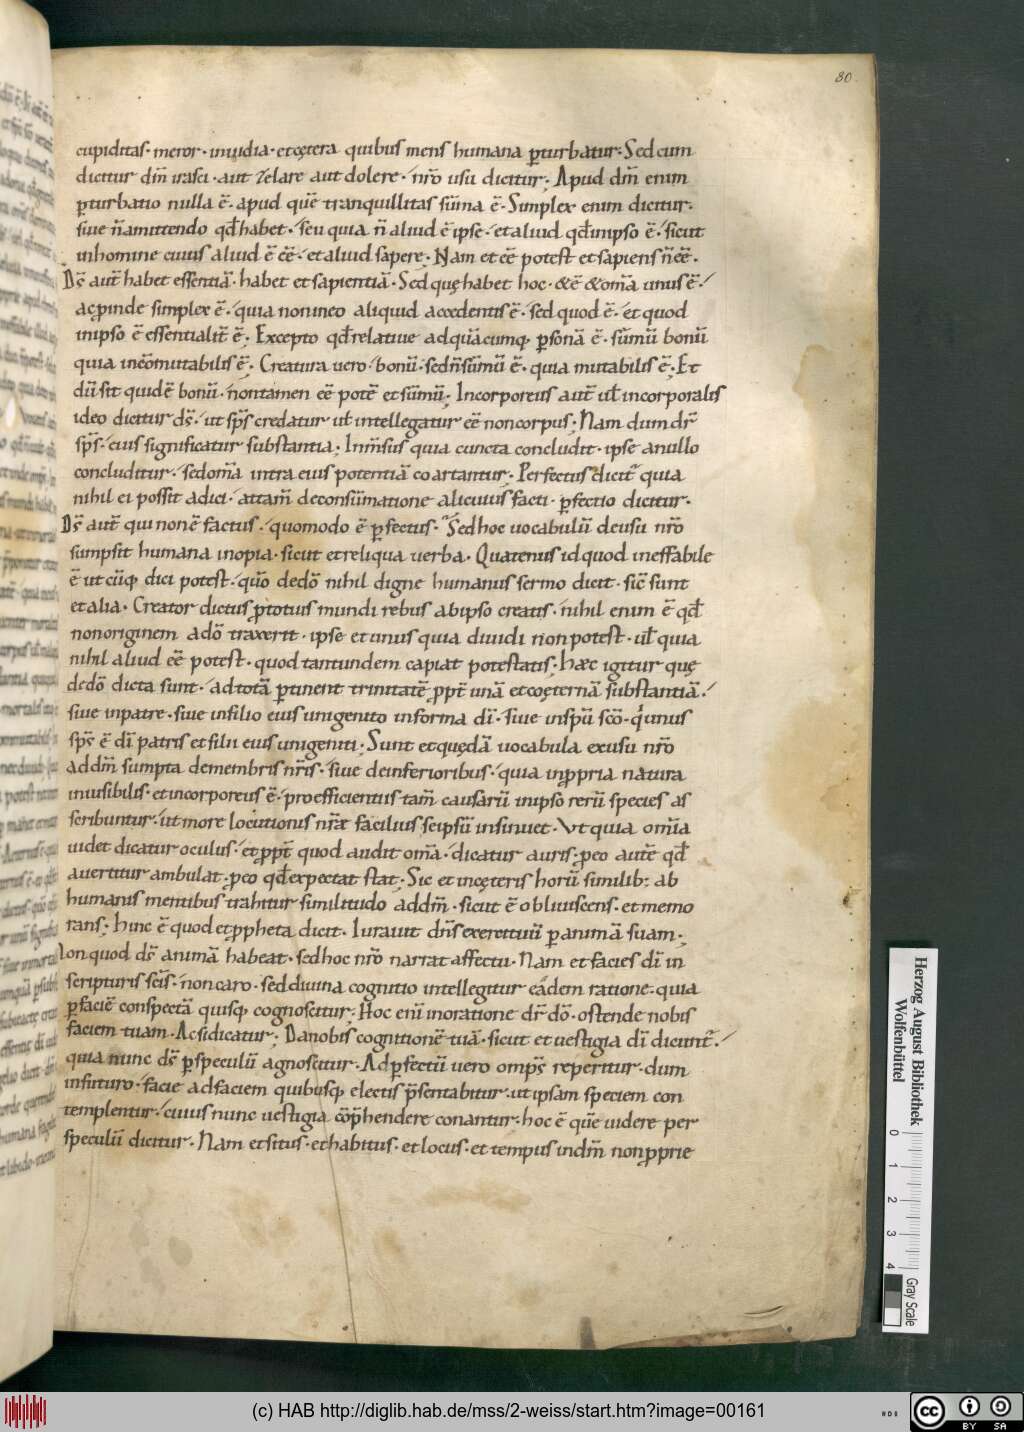 80
cupiditas· meror· inuidia· et cętera quibus mens humana p̱turbatur· Sed cum
dicitur dm̄ irasci· aut zelare aut dolere· nr̄o usu dicitur; Apud dm̄ enim
p̱turbatio nulla ē· apud quē tranquillitas sūma ē· Simplex enim dicitur·
siue n̄ amittendo qđ habet· seu quia n̄ aliud ē ipse· et aliud qđ inipso ē· sicut
inhomine cuius aliud ē eē· et aliud sapere; Nam et eē potest et sapiens n̄ eē·
Ds̄ aut̄ habet essentiā· habet et sapientiā· Sed quę habet hoc· & ē & om̄a unus ē·
ac p̱inde simplex ē· quia non ineo aliquid accedentis ē· sed quod ē· et quod
inipso ē essentialit̄ ē; Excepto qđ relatiue ad quācumq; p̱sonā ē· sūmū bonū
quia incōmutabilis ē; Creatura uero· bonū· sed n̄ sūmū ē· quia mutabilis ē; Et
dū sit quidē bonū· non tamen eē potē et sūmū; Incorporeus aut̄ uł incorporalis
ideo dicitur ds̄· ut sp̄s credatur uł intellegatur eē non corpus; Nam dum dr̄
sp̄s· eius significatur substantia; Inm̄sus quia cuncta concludit· ipse a nullo
concluditur· sed om̄a intra eius potentiā coartantur; Perfectus dicit̄ quia
nihil ei possit adici· attam̄ de consūmatione alicuius facti· p̱fectio dicitur·
Ds̄ aut̄ qui non ē factus· quomodo ē p̱fectus· Sed hoc uocabulū de usu nr̄o
sumpsit humana inopia· sicut et reliqua uerba· Quatenus id quod ineffabile
ē ut cūq; dici potest· quō de dō nihil digne humanus sermo dicit· sic̄ sunt
et alia· Creator dictus p̱ totius mundi rebus ab ipso creatis· nihil enim ē qđ
non originem a dō traxerit· ipse et unus quia diuidi non potest· uł quia
nihil aliud eē potest· quod tantundem capiat potestatis; Hæc igitur quę
de dō dicta sunt· ad totā p̱tinent trinitatē ppt̄ unā et coęternā substantiā·
siue inpatre· siue infilio eius unigenito informa dī· siue insp̄u sc̄o· qͥ unus
sp̄s ē dī patris et filii eius unigeniti; Sunt et quędā uocabula ex usu nr̄o
ad dm̄ sumpta de membris nr̄is· siue de inferioribus· quia in ppria natura
inuisibilis· et incorporeus ē· pro efficientiis tam̄ causarū inipso rerū species as
scribuntur· ut more locutionis nr̄æ facilius se ipsū insinuet· Vt quia om̄ia
uidet dicatur oculus· et ppt̄ quod audit om̄a· dicatur auris· p eo autē qđ
auertitur ambulat· p eo qđ expectat stat; Sic et in cęteris horū similib; ab
humanis mentibus trahitur similitudo ad dm̄· sicut ē obliuiscens· et memo
rans; hinc ē quod et ppheta dicit· Iurauit dn̄s exercituū p̱ animā suam;
Non quod ds̄ animā habeat· sed hoc nr̄o narrat affectu· Nam et facies dī in
scripturis sc̄is· non caro· sed diuina cognitio intellegitur eādem ratione· quia
p̱ faciē conspectā quisq; cognoscitur; Hoc enī inoratione dr̄ dō· ostende nobis
faciem tuam· Ac si dicatur; Da nobis cognitionē tuā· sicut et uestigia dī dicunt̄·
quia nunc ds̄ p̱ speculū agnoscitur· Ad p̱fectū uero omps̄ reperitur· dum
infuturo· facie ad faciem quibusq; electis p̄sentabitur· ut ipsam speciem con
templentur· cuius nunc uestigia cōp̄hendere conantur· hoc ē quē uidere per
speculū dicitur· Nam et situs· et habitus· et locus· et tempus in dm̄ non pprie
Herzog August Bibliothek
Wolfenbüttel
0 1 2 3 4
Gray Scale
(c) HAB http://diglib.hab.de/mss/2-weiss/start.htm?image=00161
cc BY SA